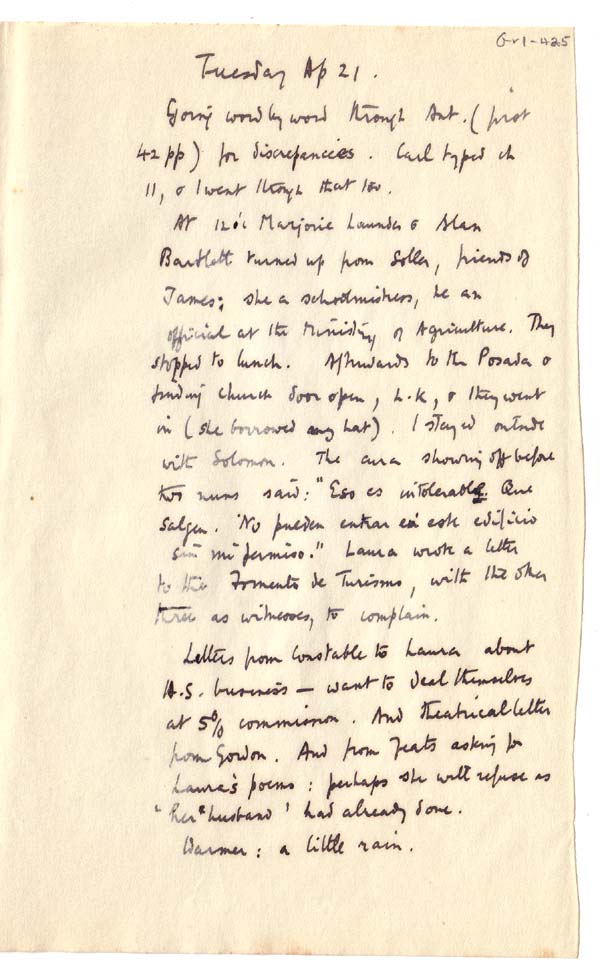 G-1-425
Tuesday Ap 21.
Going word by word through Ant. (first
42 pp) for discrepancies. Karl typed ch
11, & I went through that too.
At 12 Marjorie & Alan
Bartlett turned up from Soller, friends of
James; she a schoolmistress, he an
official at the Ministry of Agriculture. They
stopped to lunch. Afterwards to the Posada &
finding church door open, L. K, & they went
in (she borrowed my hat). I stayed outside
with Solomon. The cura showing off before
two nuns said: "Eso es intolerable. Que
salgan. No pueden entrar en este edificio
sin mi permiso." Laura wrote a letter
to the Fomento de Turismo, with the other
three as witnesses, to complain.
Letters from Constable to Laura about
A.S. business — want to deal themselves
at 5% commission. And theatrical letter
from Gordon. And from Yeats asking for
Laura's poems: perhaps she will refuse as
'her "husband' had already done.
Warmer: a little rain.